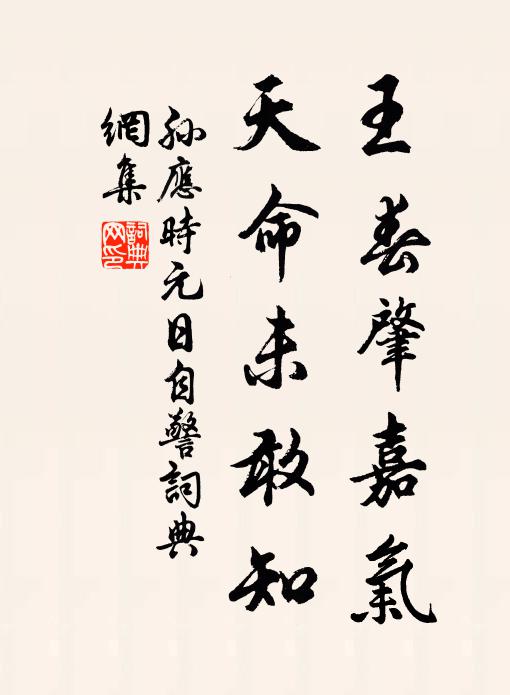 王春肇嘉氣
天命未敢知
孫應時元日自警詞典
網集
詞典
网印